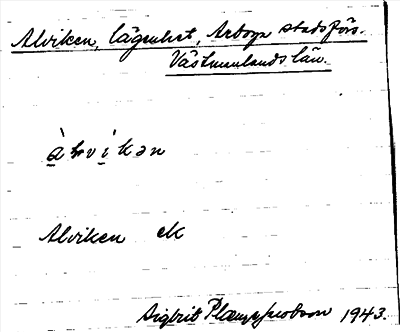 Alviken, lägenhet, Arboga stadsförs.
Västmanlands län.
àlvikən
Alviken ek
Sigbrit 1943.